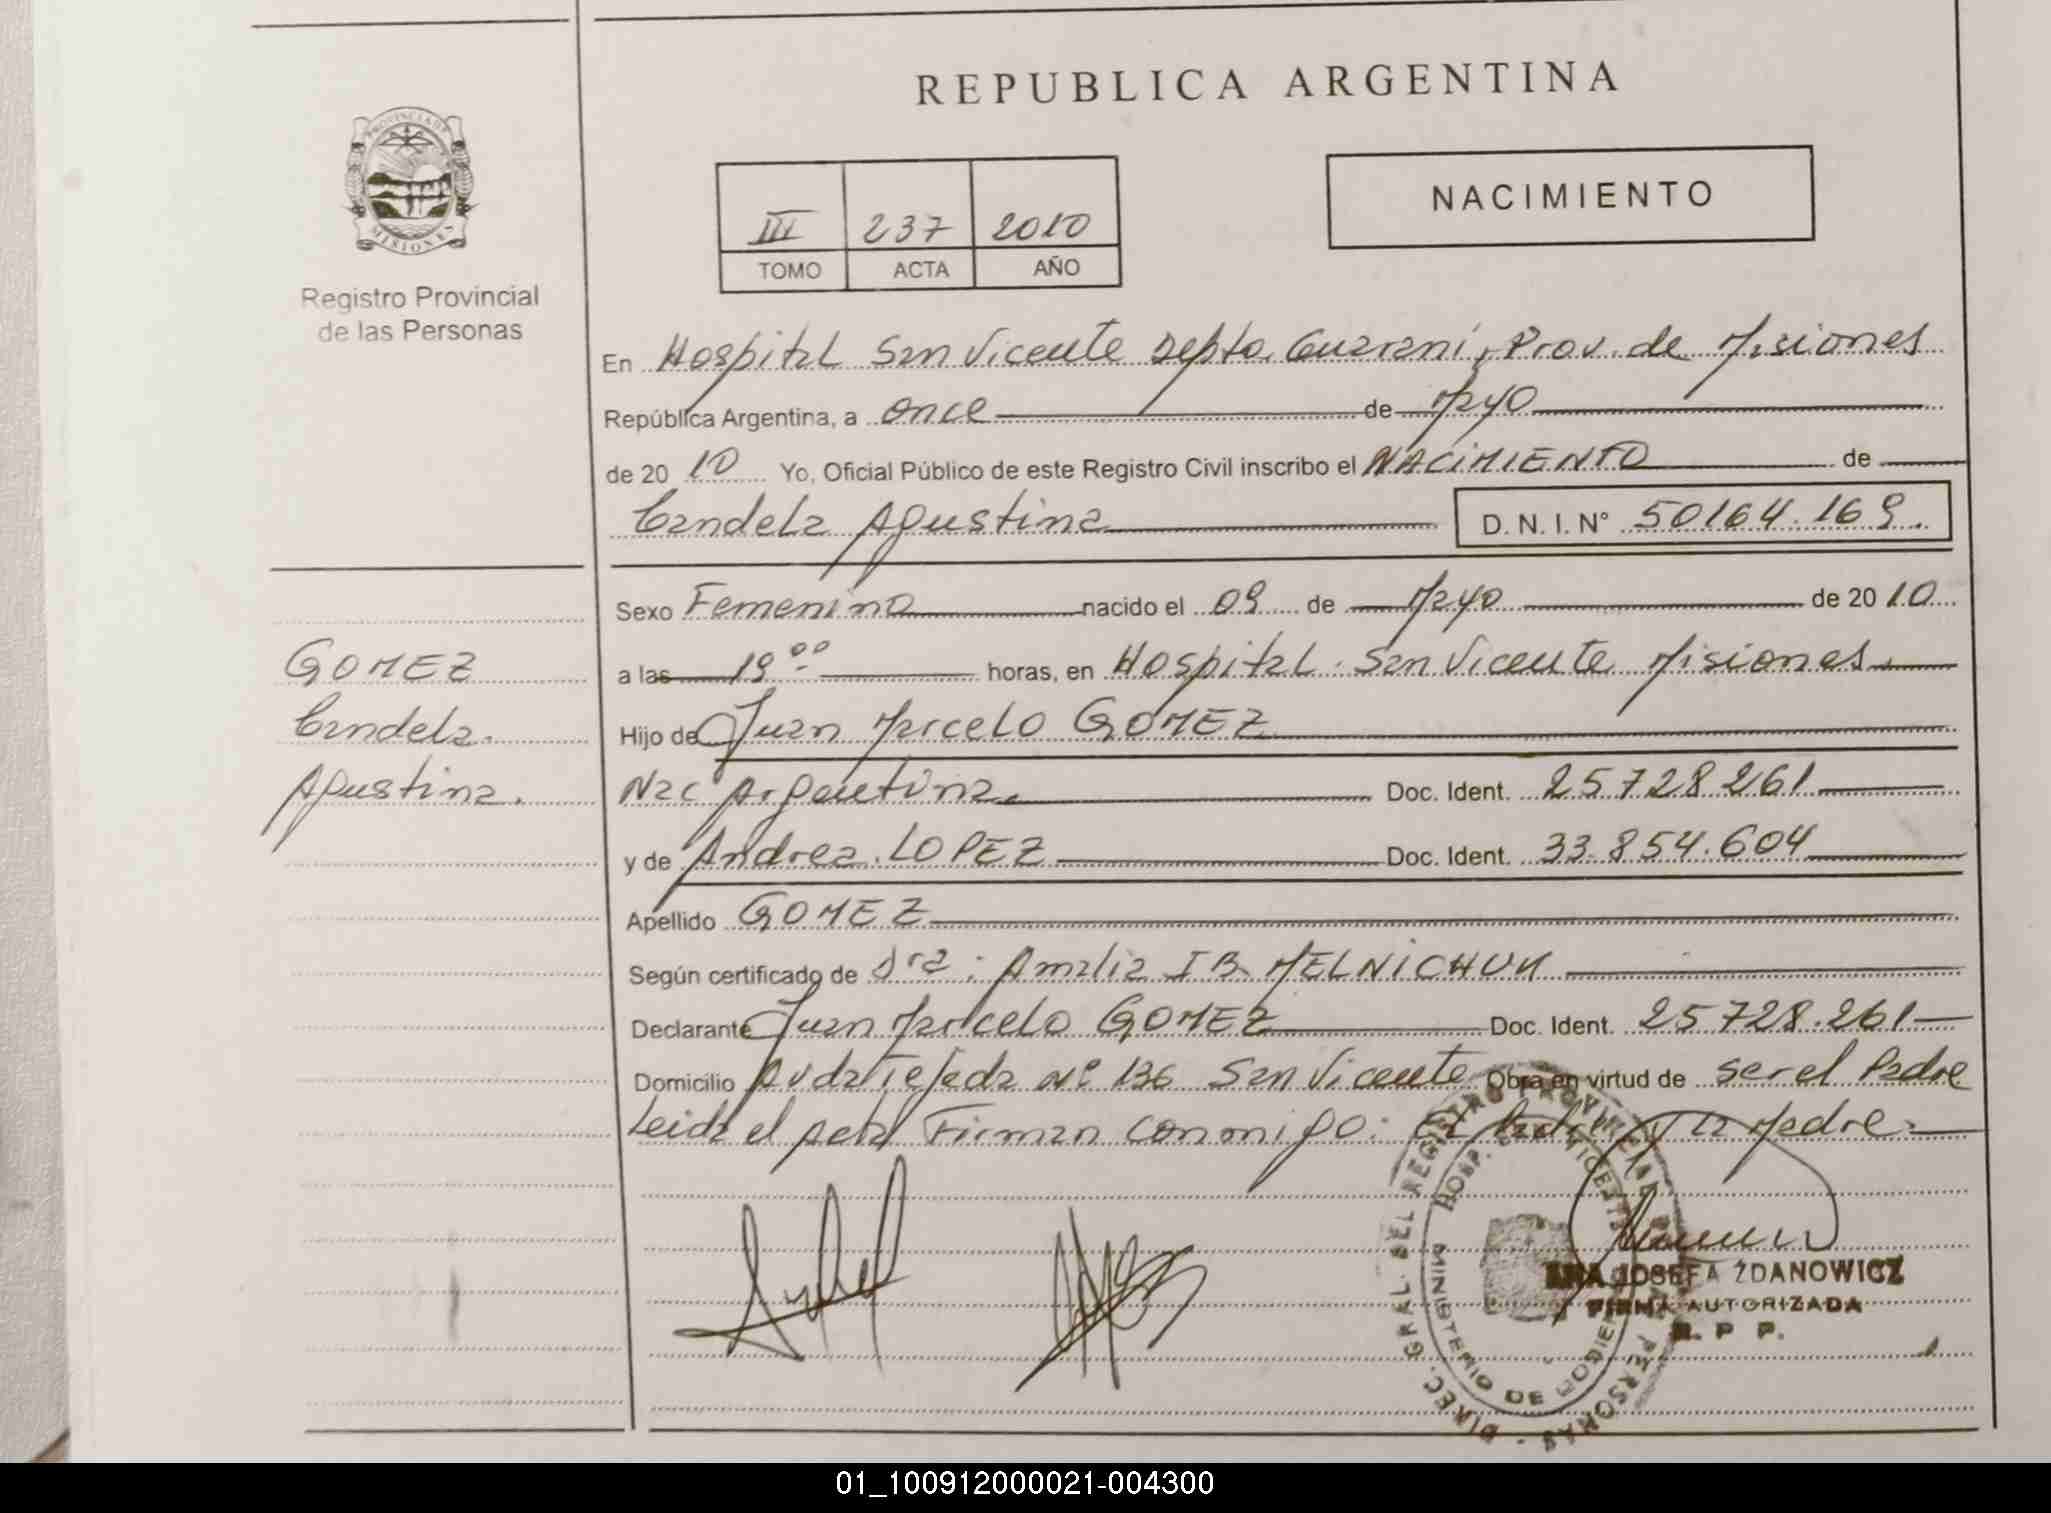 REPUBLICA ARGENTINA
PROVINCIA DE
MISIONES
Registro Provincial
de las Personas
III 237 2010
TOMO ACTA AÑO
NACIMIENTO
En Hospital San Vicente Depto. Guaraní, Prov. de Misiones
República Argentina, a once de Mayo
de 20 10 Yo, Oficial Público de este Registro Civil inscribo el NACIMIENTO de
Candela Agustina D. N. I. N° 50164.169.
Sexo Femenino nacido el 09 de Mayo de 20 10
a las 19 00 horas, en Hospital San Vicente Misiones.
Hijo de Juan Marcelo GOMEZ
Nac Argentina. Doc. Ident. 25728261
y de Andrea LOPEZ Doc. Ident. 33.854.604
Apellido GOMEZ
Según certificado de Dra. Amalia I B. MELNICHUK
Declarante Juan Marcelo GOMEZ Doc. Ident. 25728.261
Domicilio Avda Tejeda Nº 136 San Vicente Obra en virtud de ser el Padre
Leida el Acta Firman conmigo: El Padre y la Madre.
GOMEZ
Candela.
Agustina.
DIREC. GRAL. DEL REGISTRO PROVINCIAL PERSONAS
HOSP. VICENTE
MINISTERIO DE GOBIERNO
ANA JOSEFA ZDANOWICZ
FIRMA AUTORIZADA
R. P P.
01_100912000021-004300